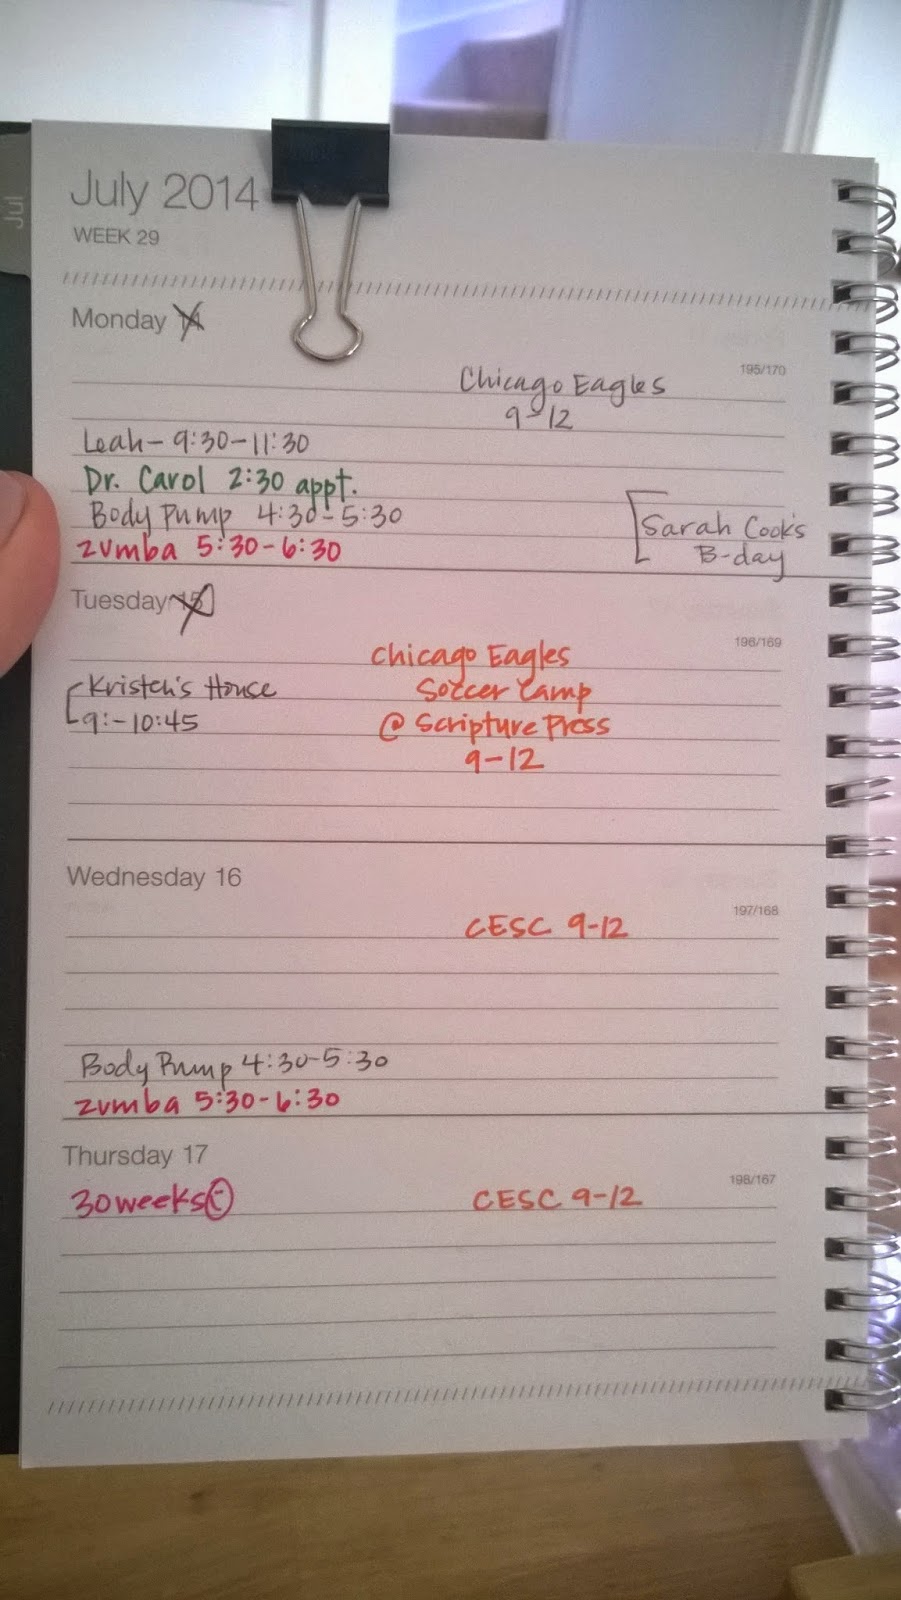 Jul
July 2014
WEEK 29
Monday 14
195/170
Chicago Eagles
9-12
Leah - 9:30-11:30
Dr. Carol 2:30 appt.
Body Pump 4:30-5:30
Zumba 5:30-6:30
Sarah Cook's
B-day
Tuesday 15
196/169
Chicago Eagles
Soccer Camp
@ Scripture Press
9-12
Kristen's House
9:-10:45
Wednesday 16
197/168
CESC 9-12
Body Pump 4:30-5:30
Zumba 5:30-6:30
Thursday 17
198/167
30 weeks
CESC 9-12